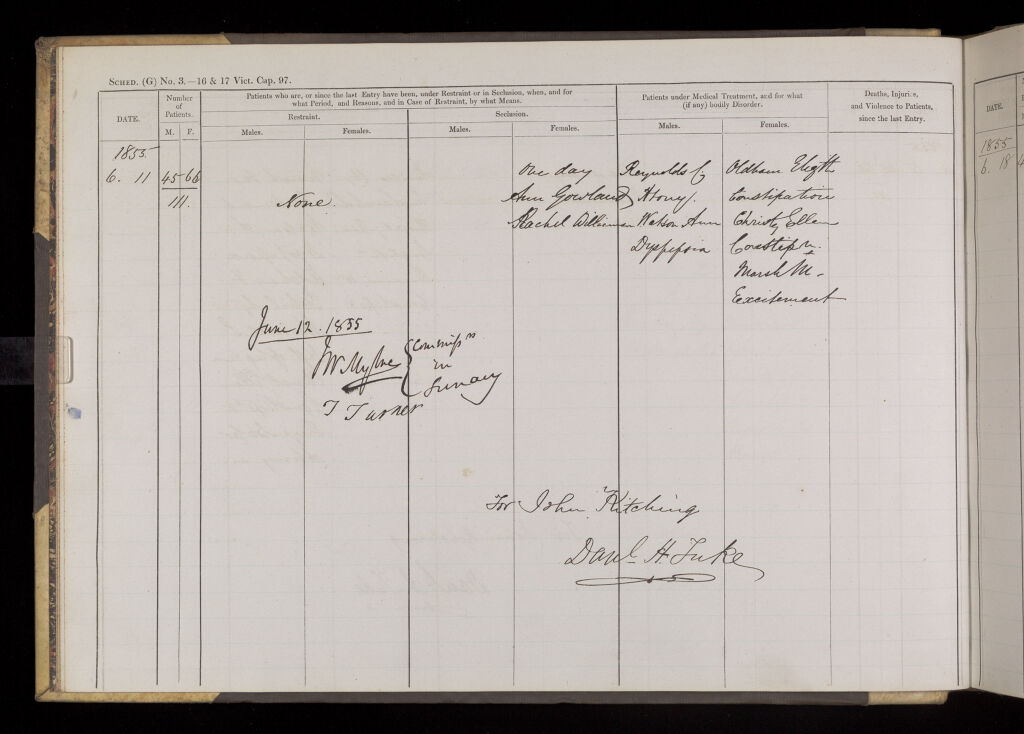 SCHED. (G) No. 3.—16 & 17 Vict. Cap. 97.
DATE.
Number
of
Patients.
M. F.
Patients who are, or since the last Entry have been, under Restraint or in Seclusion, when, and for
what Period, and Reasons, and in Case of Restraint, by what Means.
Restraint.
Seclusion.
Males. Females. Males. Females.
Patients under Medical Treatment, and for what
(if any) bodily Disorder.
Males. Females.
Deaths, Injuries,
and Violence to Patients,
since the last Entry.
1855
6. 11 45 66 One day Reynolds Oldham
111. None. Ann Gowland Constipation
Rachel Watson Ann Christy Ellen
Dyspepsia Constipn.
Marsh M-
Excitement
June 12. 1855
T Turner
Commissrs
in
Lunacy
For John Kitching
Danl. H. Tuke
DATE.
1855
6. 18